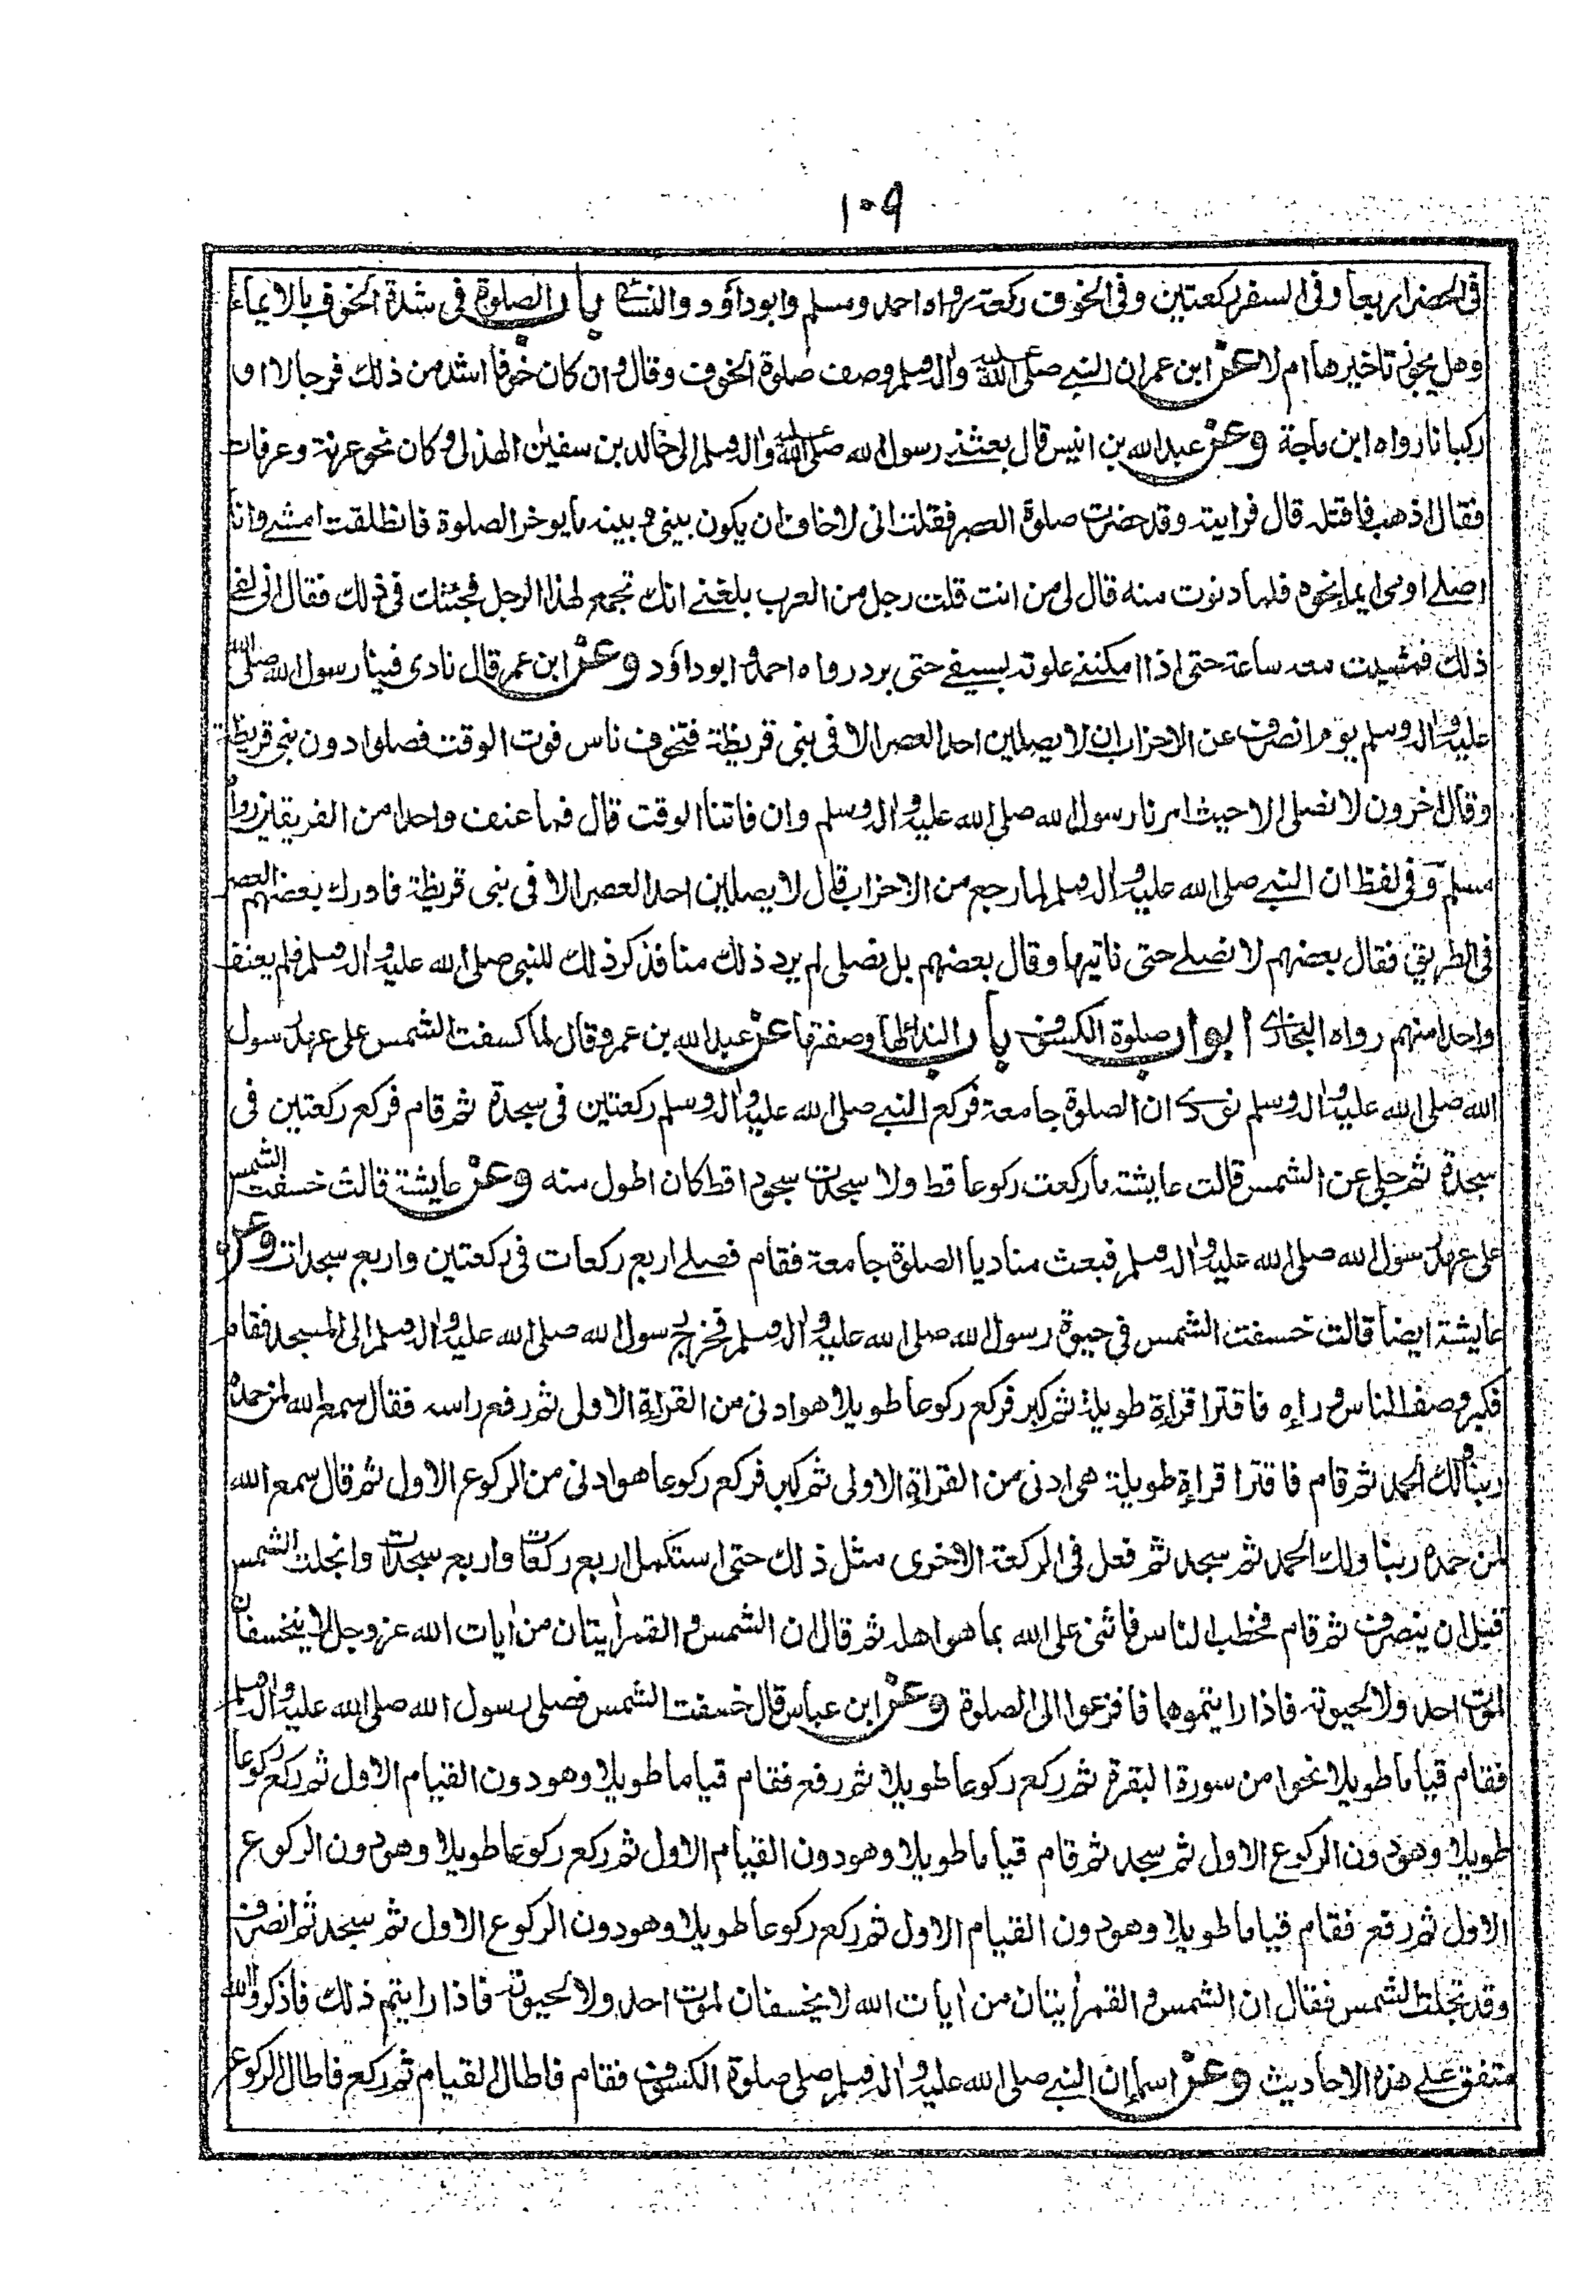 ١٠٩
فى الحضر اربعا وفى السفر ركعتين وفى الخوف ركعة رواه احمد ومسلم وابو داؤد والنسائى باب الصلوة فى شدة الخوف بالايماء
وهل يجوز تاخيرها ام لا عن ابن عمر ان النبى صلى الله عليه واله وسلم وصف صلوة الخوف وقال وان كان خوفا اشد من ذلك فرجالا او
ركبانا رواه ابن ماجة وعن عبد الله بن انيس قال بعثنى رسول الله صلى الله عليه واله وسلم الى خالد بن سفيٰن الهذلى وكان نحو عرنة وعرفات
فقال اذهب فاقتله قال فرايته وقد حضرت صلوة العصر فقلت انى لاخاف ان يكون بينى وبينه ما يوخر الصلوة فانطلقت امشى وانا
اصلى اومى ايماء نحوه فلما دنوت منه قال لى من انت قلت رجل من العرب بلغنى انك تجمع لهذا الرجل فجئتك فى ذلك فقال انى لفى
ذلك فمشيت معه ساعة حتى اذا امكننى علوته بسيفى حتى برد رواه احمد وابو داؤد وعن ابن عمر قال نادى فينا رسول الله صلى الله
عليه واله وسلم يوم انصرف عن الاحزاب ان لا يصلين احد العصر الا فى بنى قريظة فتخوف ناس فوت الوقت فصلوا دون بنى قريظة
وقال اخرون لا نصلى الا حيث امرنا رسول الله صلى الله عليه واله وسلم وان فاتنا الوقت قال فما عنف واحدا من الفريقين رواه
مسلم وفى لفظ ان النبى صلى الله عليه واله وسلم لما رجع من الاحزاب قال لا يصلين احد العصر الا فى بنى قريظة فادرك بعضهم العصر
فى الطريق فقال بعضهم لا نصلى حتى ناتيها وقال بعضهم بل نصلى لم يرد ذلك منا فذكر ذلك للنبى صلى الله عليه واله وسلم فلم يعنف
واحدا منهم رواه البخارى ابواب صلوة الكسوف باب النداء لها وصفتها عن عبد الله بن عمرو قال لما كسفت الشمس على عهد رسول
الله صلى الله عليه واله وسلم نودى ان الصلوة جامعة فركع النبى صلى الله عليه واله وسلم ركعتين فى سجدة ثم قام فركع ركعتين فى
سجدة ثم جلى عن الشمس قالت عايشة ما ركعت ركوعا قط ولا سجدت سجودا قط كان اطول منه وعن عايشة قالت خسفت الشمس
على عهد رسول الله صلى الله عليه واله وسلم فبعث مناديا الصلوة جامعة فقام فصلى اربع ركعات فى ركعتين واربع سجدات وعن
عايشة ايضا قالت خسفت الشمس فى حيوة رسول الله صلى الله عليه واله وسلم فخرج رسول الله صلى الله عليه واله وسلم الى المسجد فقام
فكبر وصف الناس وراءه فاقترا قراءة طويلة ثم كبر فركع ركوعا طويلا هو ادنى من القراءة الاولى ثم رفع راسه فقال سمع الله لمن حمده
ربنا ولك الحمد ثم قام فاقترا قراءة طويلة هى ادنى من القراءة الاولى ثم كبر فركع ركوعا هو ادنى من الركوع الاول ثم قال سمع الله
لمن حمده ربنا ولك الحمد ثم سجد ثم فعل فى الركعة الاخرى مثل ذلك حتى استكمل اربع ركعات واربع سجدات وانجلت الشمس
قبل ان ينصرف ثم قام فخطب الناس فاثنى على الله بما هو اهله ثم قال ان الشمس والقمر اٰيتان من اٰيات الله عز وجل لا ينخسفان
لموت احد ولا لحيوته فاذا رايتموهما فافزعوا الى الصلوة وعن ابن عباس قال خسفت الشمس فصلى رسول الله صلى الله عليه واله وسلم
فقام قياما طويلا نحوا من سورة البقرة ثم ركع ركوعا طويلا ثم رفع فقام قياما طويلا وهو دون القيام الاول ثم ركع ركوعا
طويلا وهو دون الركوع الاول ثم سجد ثم قام قياما طويلا وهو دون القيام الاول ثم ركع ركوعا طويلا وهو دون الركوع
الاول ثم رفع فقام قياما طويلا وهو دون القيام الاول ثم ركع ركوعا طويلا وهو دون الركوع الاول ثم سجد ثم انصرف
وقد تجلت الشمس فقال ان الشمس والقمر اٰيتان من اٰيات الله لا يخسفان لموت احد ولا لحيوته فاذا رايتم ذلك فاذكروا الله
متفق على هذه الاحاديث وعن اسماء ان النبى صلى الله عليه واله وسلم صلى صلوة الكسوف فقام فاطال القيام ثم ركع فاطال الركوع